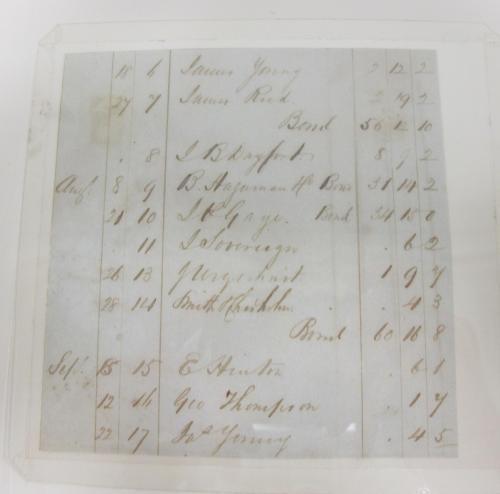 18 6 James Young 2 12 2
27 7 James Reid 2 19 2
Bond 56 12 10
. 8 J B Dayfoot 8 9 2
Augt 8 9 B. Hagaman Bond 31 14 2
21 10 Gage. Bond 34 15 0
. 11 J Sovereign . 6 2
26 13 J Urquehart 1 9 7
28 14 Smith & Chisholm . . 4 3
Bond 60 16 8
Sept. 15 E Hinton . 6 1
12 16 Geo Thompson . 1 7
22 17 Jas Young . 4 5